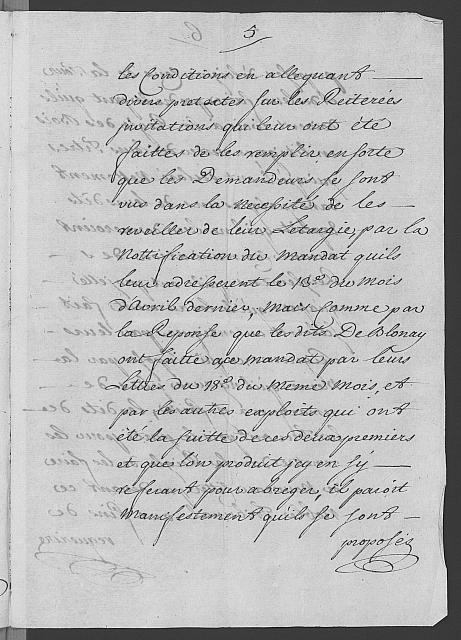 5
les Conditions en allequant
divers pretextes sur les Reiterées
invitations qui leur ont été
faittes de les remplir en sorte
que les Demandeurs se sont
vus dans la necessité de les
reveiller de leur Létargie par la
Nottification du Mandat quils
leur adresserent le 13.e du mois
d'avril dernier, Mais comme par
la Reponse que lesdits DeBlonay
ont faitte a ce mandat par leurs
Lettres du 18.e du Meme Mois, et
par les autres exploits qui ont
été la suitte de ces deux premiers
et que l'on produit icy en sy
referant pour abreger, il paroit
Manifestement qu'ils se sont
proposés